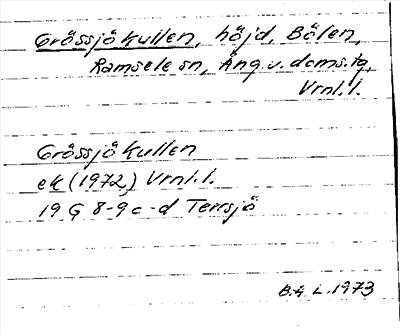 Grössjökullen, höjd, Bölen,
Ramsele sn, Ång.v. doms.ig,
Vrnl.l.
Grössjökullen
ek (1972) Vrnl.l.
19 G 8-9 c-d Terrsjö
B.G L. 1973